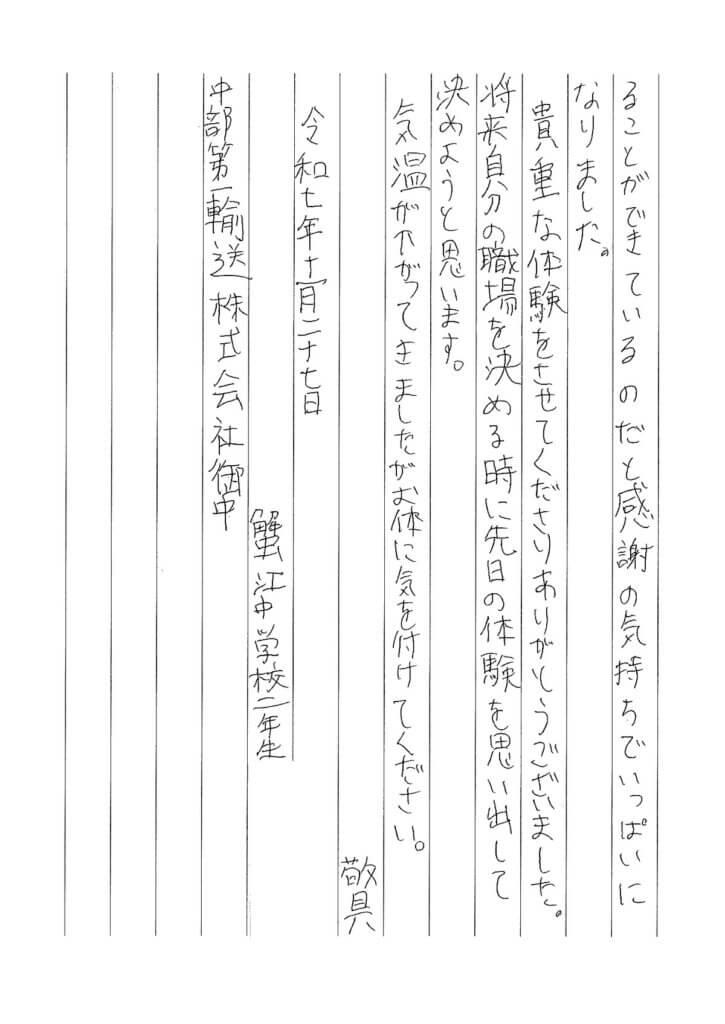 ることができているのだと感謝の気持ちでいっぱいに
なりました。
貴重な体験をさせてくださりありがとうございました。
将来自分の職場を決める時に先日の体験を思い出して
決めようと思います。
気温が下がってきましたがお体に気を付けてください。
敬具
令和七年十一月二十七日
蟹江中学校二年生
中部第一輸送株式会社御中